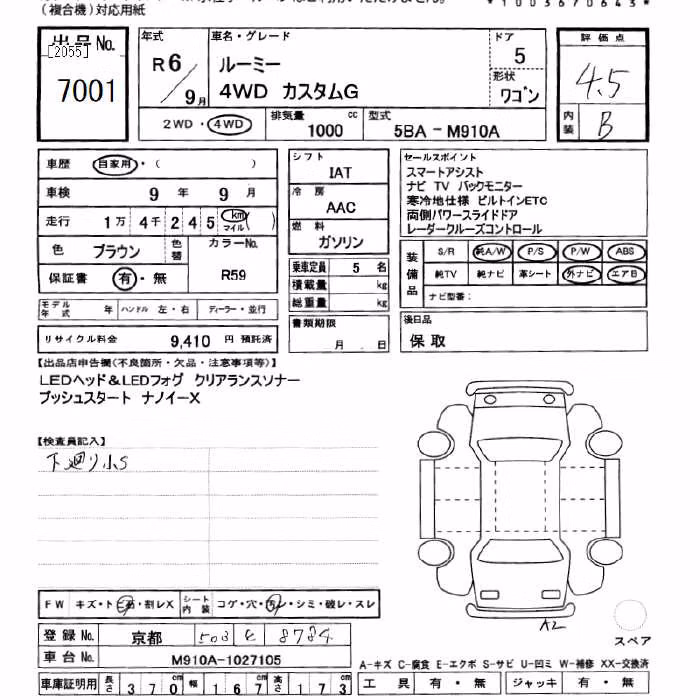 (複合機)対応用紙
*1003670643*
出品No.
[2055]
7001
年式
R6/9月
車名・グレード
ルーミー
4WD カスタムG
ドア
5
形状
ワゴン
評価点
4.5
内装
B
2WD・4WD
排気量
1000 cc
型式
5BA-M910A
車歴 自家用・( )
車検 9年 9月
走行 1万 4千 2 4 5 km マイル ( )
色 ブラウン 色替
カラーNo.
R59
保証書 有・無
モデル年式 年 ハンドル 左・右 ディーラー・並行
リサイクル料金 9,410 円 預託済
シフト
IAT
冷房
AAC
燃料
ガソリン
乗車定員 5 名
積載量 kg
総重量 kg
書類期限
月 日
セールスポイント
スマートアシスト
ナビ TV バックモニター
寒冷地仕様 ビルトインETC
両側パワースライドドア
レーダークルーズコントロール
装備品
S/R 純A/W P/S P/W ABS
純TV 純ナビ 革シート 外ナビ エアB
ナビ型番:
後日品
保取
【出品店申告欄(不良箇所・欠品・注意事項等)】
LEDヘッド&LEDフォグ クリアランスソナー
プッシュスタート ナノイーX
【検査員記入】
下廻り小S
FW キズ・トビ石・割レX シート内装 コゲ・穴・汚レ・シミ・破レ・スレ
登録No. 京都 503 8784
車台No. M910A-1027105
車庫証明用 長さ 370cm 幅 167cm 高さ 173cm
A2
スペア
A-キズ C-腐食 E-エクボ S-サビ U-凹ミ W-補修 XX-交換済
工具 有・無 ジャッキ 有・無